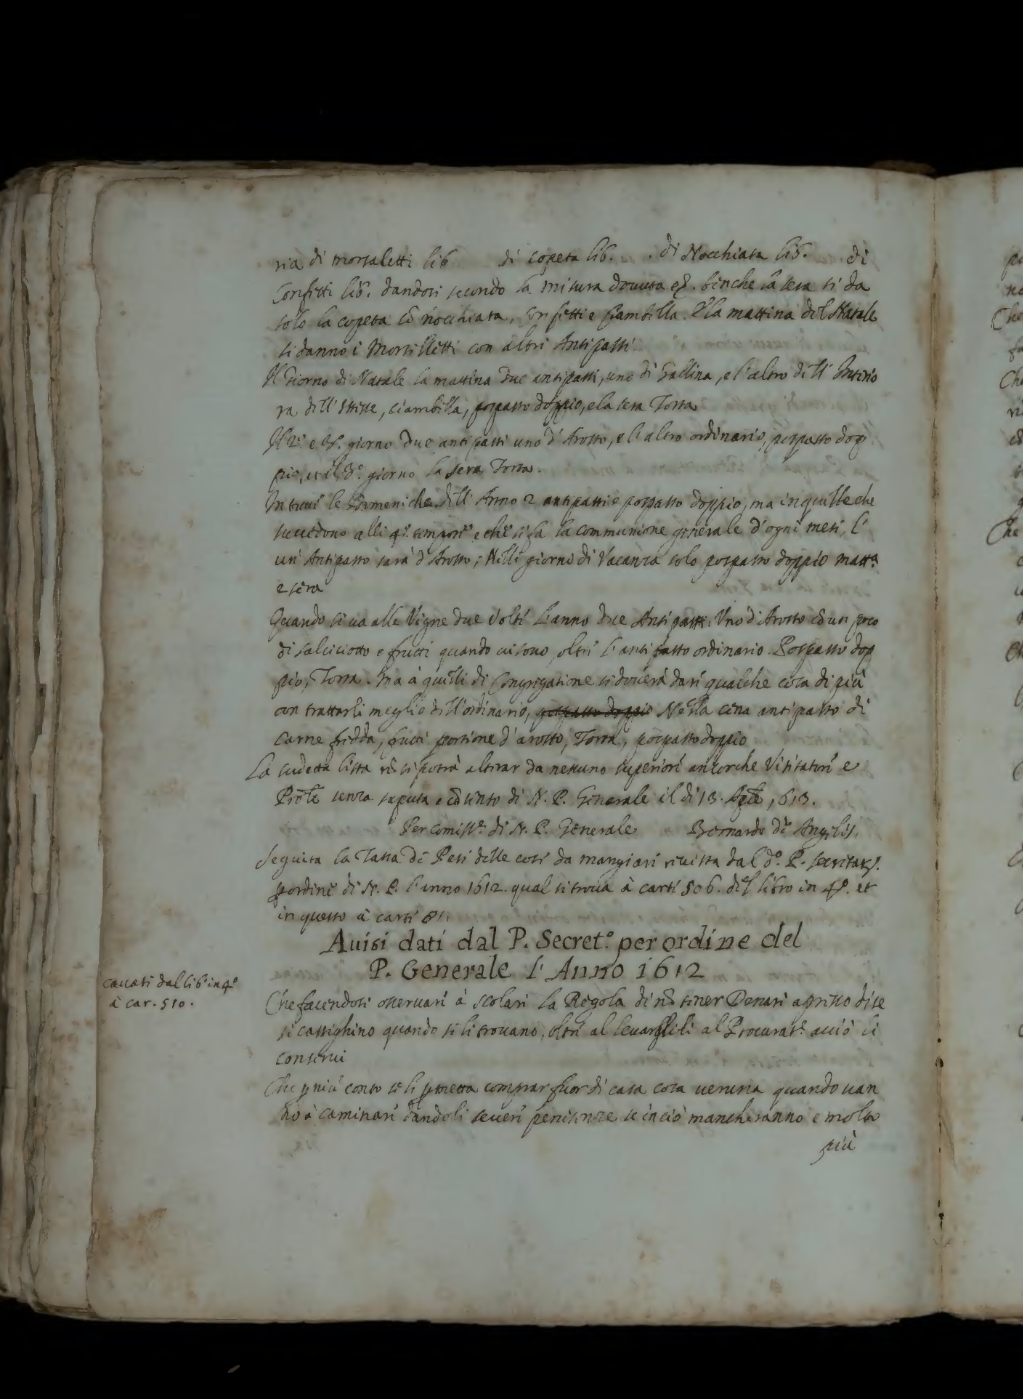 ria di morsaletti lib. di Copeta lib. di Nocchiata lib. di
Confetti lib. dandosi secondo la misura dovuta benche la sera si da
solo la copeta cō nocchiata, Confetti e Ciambella. E la mattina del Natale
si danno i Morselletti con altri Antipasti
Il Giorno di Natale la mattina due antipasti, uno di Gallina, e l'altro dell'
ra dell' ciambella, pospasto doppio, e la sera Torta
Il 2º e 3º giorno Due antipasti uno d'Arosto, e l'altro ordinario, pospasto dop
pio, giorno la sera Torta.
In tutte le Domeniche dell' Anno 2 antipasti e pospasto doppio, ma in quelle che
succedono alli 4º tempori e che si fa la communione generale d'ogni mese, l'
un' Antipasto sara d'Arosto; Nelli giorni di Vacanza solo pospasto doppio matt.ª
e sera
Quando si va alle Vigne due volte l'anno due Antipasti. Uno d'Arosto cō un poco
di salciciotto e frutti quando vi sono, oltre l'antipasto ordinario. Pospasto dop
pio, Torta. Ma a quelli di Congregatione si doverà dare qualche cosa di più
con trattarli meglio dell'ordinario, pospasto doppio Nella cena antipasto di
carne fredda, frutti portione d'arosto, Torta, pospasto doppio
La sudetta lista nō si potrà alterar da nessuno superiore ancorche Visitatore e
senza saputa e cōsenso di N. P. Generale il di 13 1613.
Per Comiss.e di N. P. Generale Bernardo de Angelis.
Seguita la Tassa de Pesi delle cose da mangiare rivista dal dº. P. Secretarº.
p ordine di N. P. l'anno 1612. qual si trova à carte 506. del libro in 4º. et
in questo à carte 81.
Avisi dati dal P. Secret.º per ordine del
P. Generale l'Anno 1612
cavati dal lib. in 4º
à car. 510.
Che facendosi osservare à scolari la Regola di nō tener Denari apresso di se
si castighino quando si li trovano, oltre al levarseli al Procurat.e acciò li
conservi
Che p niū conto se li pmetta comprar fuor di casa cosa veruna quando van
no à caminare dandoli severe penitenze se in ciò mancheranno e molto
più